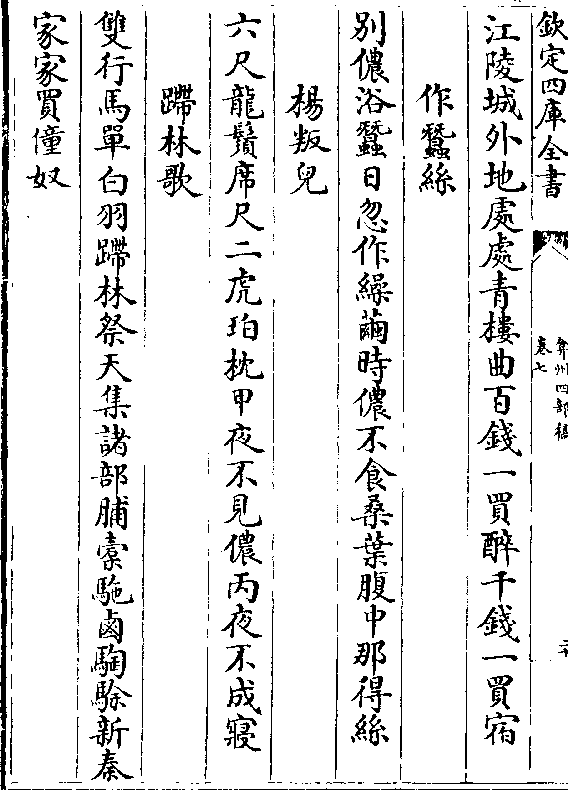 欽定四庫全書
弇州四部稿
卷七
江陵城外地處處青樓曲百錢一買醉千錢一買宿
作蠶絲
別儂浴蠶日忽作繰繭時儂不食桑葉腹中那得絲
楊叛兒
六尺龍鬚席尺二虎珀枕甲夜不見儂丙夜不成寢
蹛林歌
雙行馬單白羽蹛林祭天集諸部脯橐駞鹵騊駼新秦
家家買僮奴